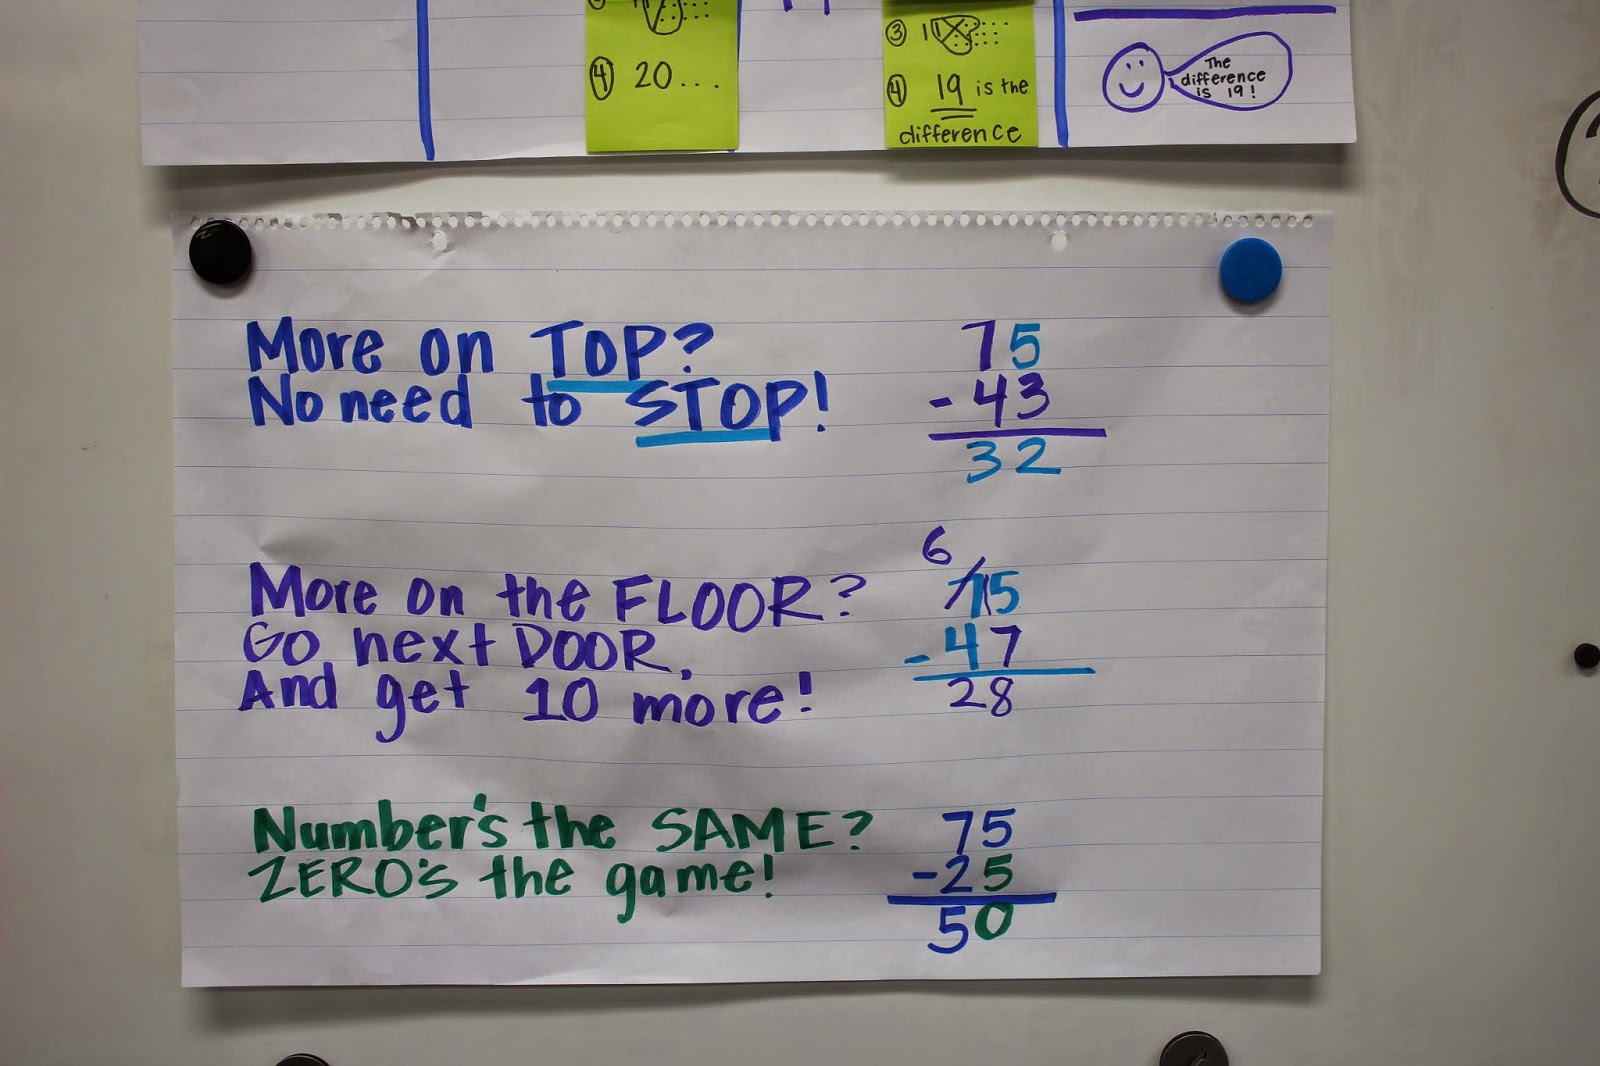 ④ 20...
③
④ 19 is the
difference
The
difference
is 19!
More on TOP?
No need to STOP!
75
- 43
32
More on the FLOOR?
Go next DOOR,
And get 10 more!
6
7 15
- 47
28
Number's the SAME?
ZERO's the game!
75
- 25
50